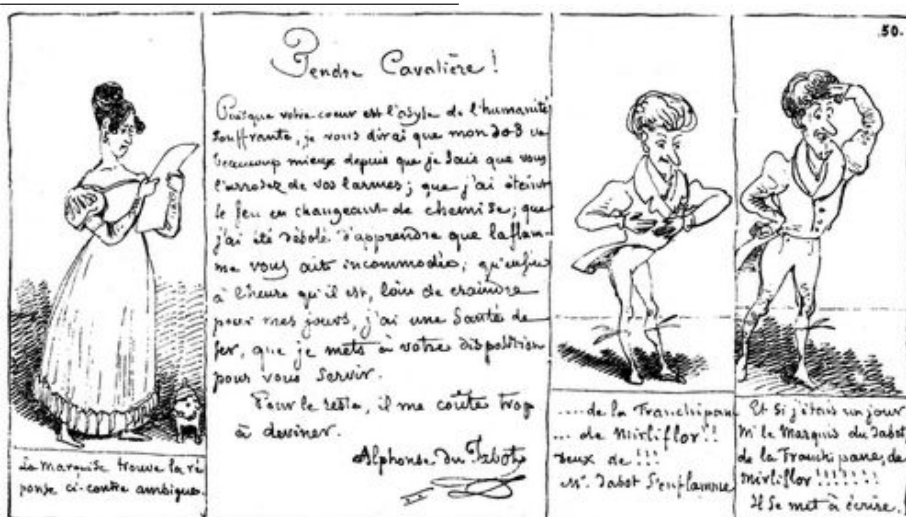 50.
La Marquise trouve la ré
ponse ci-contre ambigue.
Tendre Cavalière !
Puisque votre coeur est l'asyle de l'humanité
souffrante, je vous dirai que mon dos va
beaucoup mieux depuis que je sais que vous
l'arrosez de vos larmes ; que j'ai éteint
le feu en changeant de chemise ; que
j'ai été désolé d'apprendre que la flam-
me vous ait incommodée ; qu'enfin
à l'heure qu'il est, loin de craindre
pour mes jours, j'ai une santé de
fer, que je mets à votre disposition
pour vous servir.
Pour le reste, il me coûte trop
à deviner.
Alphonse du Jabot
.... de la Franchipane
... de Mirliflor !!
deux de !!!
Mr. Jabot s'enflamme
Et si j'étais un jour
Mr le Marquis du Jabot,
de la Franchipane, de
Mirliflor !!!!!!!
Il se met à écrire.